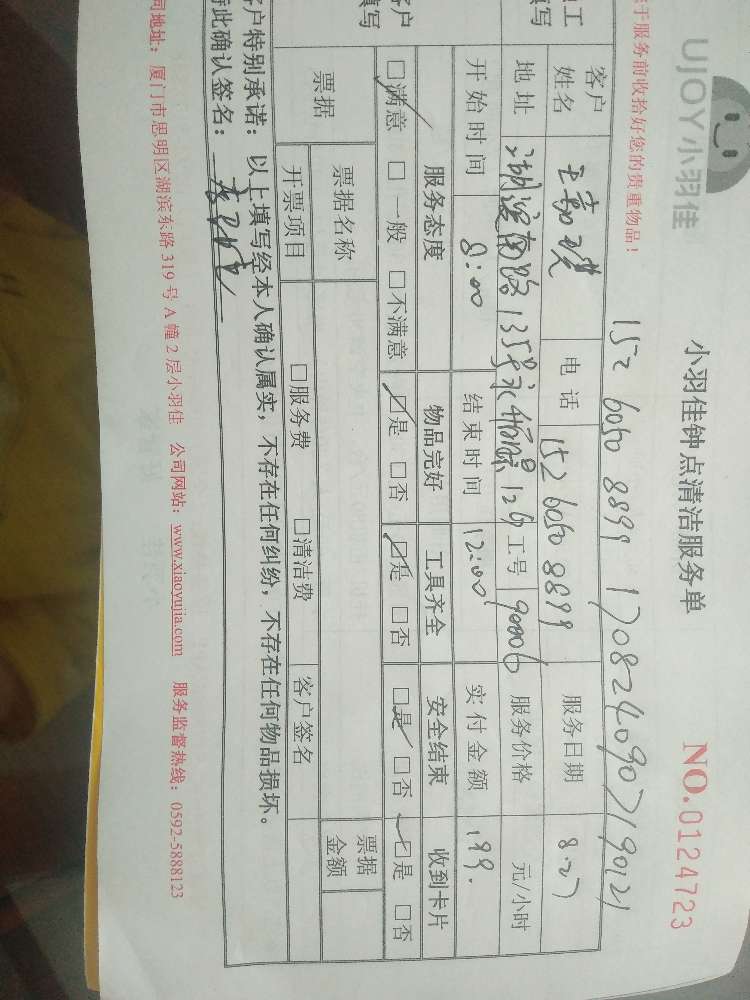 UJOY小羽佳
小羽佳钟点清洁服务单
NO.0124723
于服务前收拾好您的贵重物品！
152 6050 8899 1708240907190121
工
填写
客户姓名 电话 152 6050 8899 服务日期 8.27
地址 湖滨南路135号 工号 90006 服务价格 元/小时
开始时间 8:00 结束时间 12:00 实付金额 199.
客户
填写
服务态度 物品完好 工具齐全 安全结束 收到卡片
□满意 □一般 □不满意 □是 □否 □是 □否 □是 □否 □是 □否
票据 票据名称 票据金额
开票项目 □服务费 □清洁费 客户签名
客户特别承诺：以上填写经本人确认属实，不存在任何纠纷，不存在任何物品损坏。
特此确认签名：
司地址：厦门市思明区湖滨东路319号A幢2层小羽佳 公司网站：www.xiaoyujia.com 服务监督热线：0592-5888123